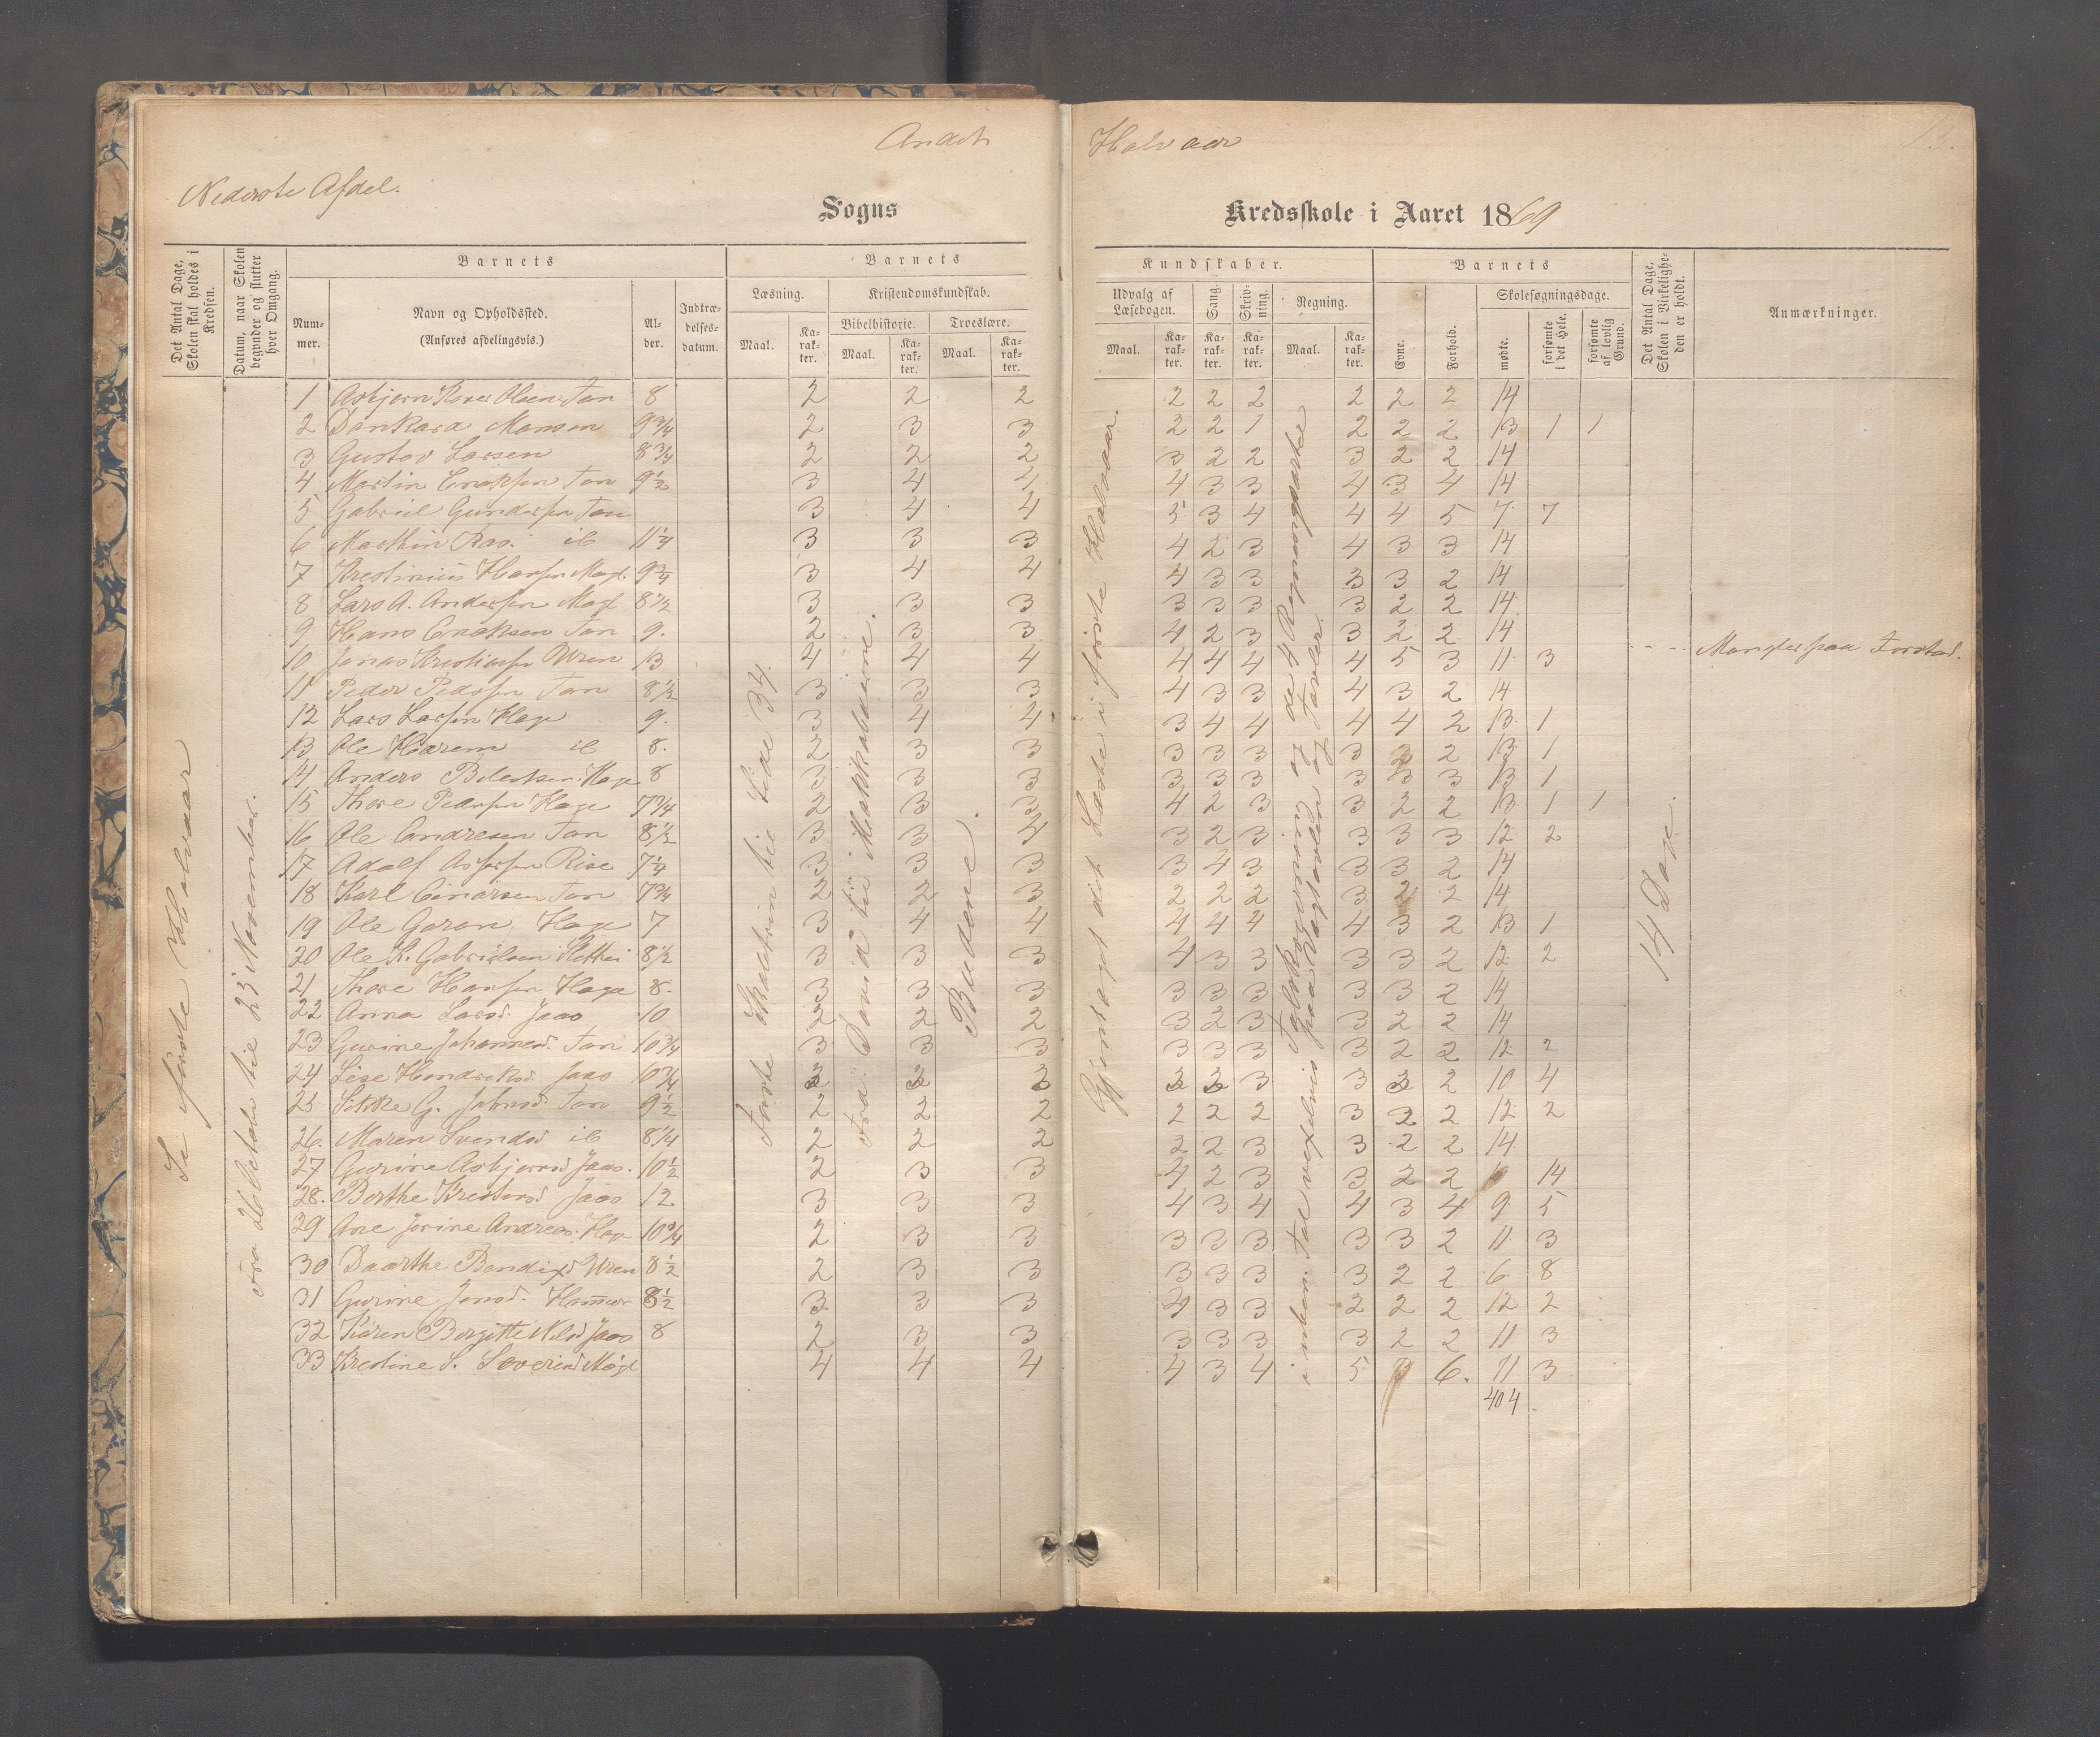 Andet Halvaar
Nederste Afdel.
Sogns Kredsskole i Aaret 1869
Det Antal Dage, Skolen skal holdes i Kredsen.
Datum, naar Skolen begynder og slutter hver Omgang.
Barnets
Num-mer.
Navn og Opholdssted.
(Anføres afdelingsvis.)
Al-der.
Indtræ-delses-datum.
Barnets
Læsning.
Maal.
Ka-rak-ter.
Kristendomskundskab.
Bibelhistorie.
Maal.
Ka-rak-ter.
Troeslære.
Maal.
Ka-rak-ter.
Kundskaber.
Udvalg af Læsebogen.
Maal.
Ka-rak-ter.
Sang.
Ka-rak-ter.
Skriv-ning.
Ka-rak-ter.
Regning.
Maal.
Ka-rak-ter.
Barnets
Evne.
Forhold.
Skolesøgningsdage.
mødte.
forsømte i det Hele.
forsømte af lovlig Grund.
Det Antal Dage, Skolen i Virkelighe-den er holdt.
Anmærkninger.
Se første Halvaar
Fra 26 Oktober til 23 November.
Første Skoletrin til Side 34.
Fra David til Makkabæerne.
Budene.
Gjentaget det Læste i første Halvaar.
14 Dage.
1 Asbjørn Olsen Tan 8 2 2 2 2 2 2 2 2 2 14
2 Monsen 9 3/4 2 3 3 2 2 1 2 2 2 13 1 1
3 Gustav Larsen 8 3/4 2 2 2 3 2 2 3 2 2 14
4 Martin Eriksen Tan 9 1/2 3 4 4 4 3 3 4 3 4 14
5 Gabriel Gundersen Tan 3 4 4 5 3 4 4 4 5 7 7
6 Marthin Ras. ib 11 1/4 3 3 3 4 2 3 4 3 3 14
7 Krestinius Hansen Mogl. 9 3/4 3 4 4 4 3 3 3 3 2 14
8 Lars A. Andersen Mogl 8 1/2 3 3 3 3 3 3 3 2 2 14
9 Hans Eriksen Tan 9. 2 3 3 4 2 3 3 2 2 14
10 Jonas Kristiansen Wren 13 4 4 4 4 4 4 4 5 3 11 3 Mangler paa Forstand.
11 Peder Pedersen Tan 8 1/2 3 3 3 4 3 3 4 3 2 14
12 Lars Larsen Hage 9. 3 4 4 3 4 4 4 4 2 13 1
13 Ole Harem ib 8. 2 3 3 3 3 3 3 2 2 13 1
14 Anders Hage 8 3 3 3 3 3 3 3 3 3 13 1
15 Thore Pedersen Hage 7 3/4 2 3 3 4 2 3 3 2 2 13 1 1
16 Ole Andresen Tan 8 1/2 3 3 4 3 2 3 3 3 3 12 2
17 Adolf Rise 7 1/4 3 3 3 3 4 3 3 3 2 14
18 Karl Einarsen Tan 7 3/4 2 2 3 2 2 2 3 2 2 14
19 Ole Goran Hage 7 3 4 4 4 4 4 4 3 2 13 1
20 Ole K. Gabrielsen 8 1/2 3 3 3 4 3 3 3 3 2 12 2
21 Thore Hansen Hage 8. 3 3 3 3 3 3 3 3 2 14
22 Anna Larsd. Jaas 10 2 2 2 3 2 3 3 2 2 14
23 Gurine Johannesd. Tan 10 3/4 3 3 3 3 3 3 3 2 2 12 2
24 Lise Hendriksd. Jaas 10 3/4 3 3 3 3 3 3 2 10 4
25 Sikke G. Jahnsd. Tan 9 1/2 2 2 2 2 2 2 3 2 2 12 2
26. Maren Svendsd ib 8 1/4 2 2 2 2 2 3 3 2 2 14
27 Gurine Asbjørnsd Jaas. 10 1/2 2 3 3 4 2 3 3 2 2 14
28. Berthe Krestensd Jaas 12 3 3 3 4 3 4 4 3 4 9 5
29 Ane Jorine Andreas. Hage 10 3/4 2 3 3 3 3 3 3 3 2 11 3
30 Daarthe Bendixd Wren 8 1/2 2 3 3 3 3 3 3 2 2 6 8
31 Gurine Jensd. Hammer 8 1/2 3 3 3 4 3 3 2 2 2 12 2
32 Karen Bergitte Nilsd Jaas 8 2 3 3 3 3 3 3 2 2 11 3
33 Krestine S. Severind Møgl 4 4 4 4 3 4 5 6. 11 3
404